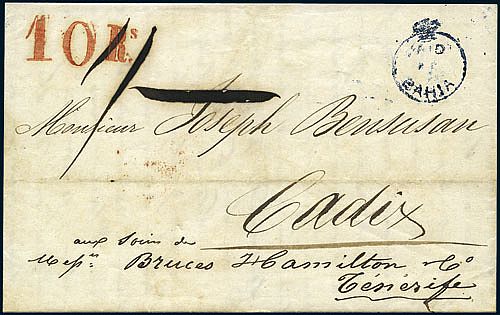 10 Rs
PAID
AT
BAHIA
Monsieur Joseph Bensusan
Cadix
aux soins de
Messrs. Bruces Hamilton & Co
Ténérife